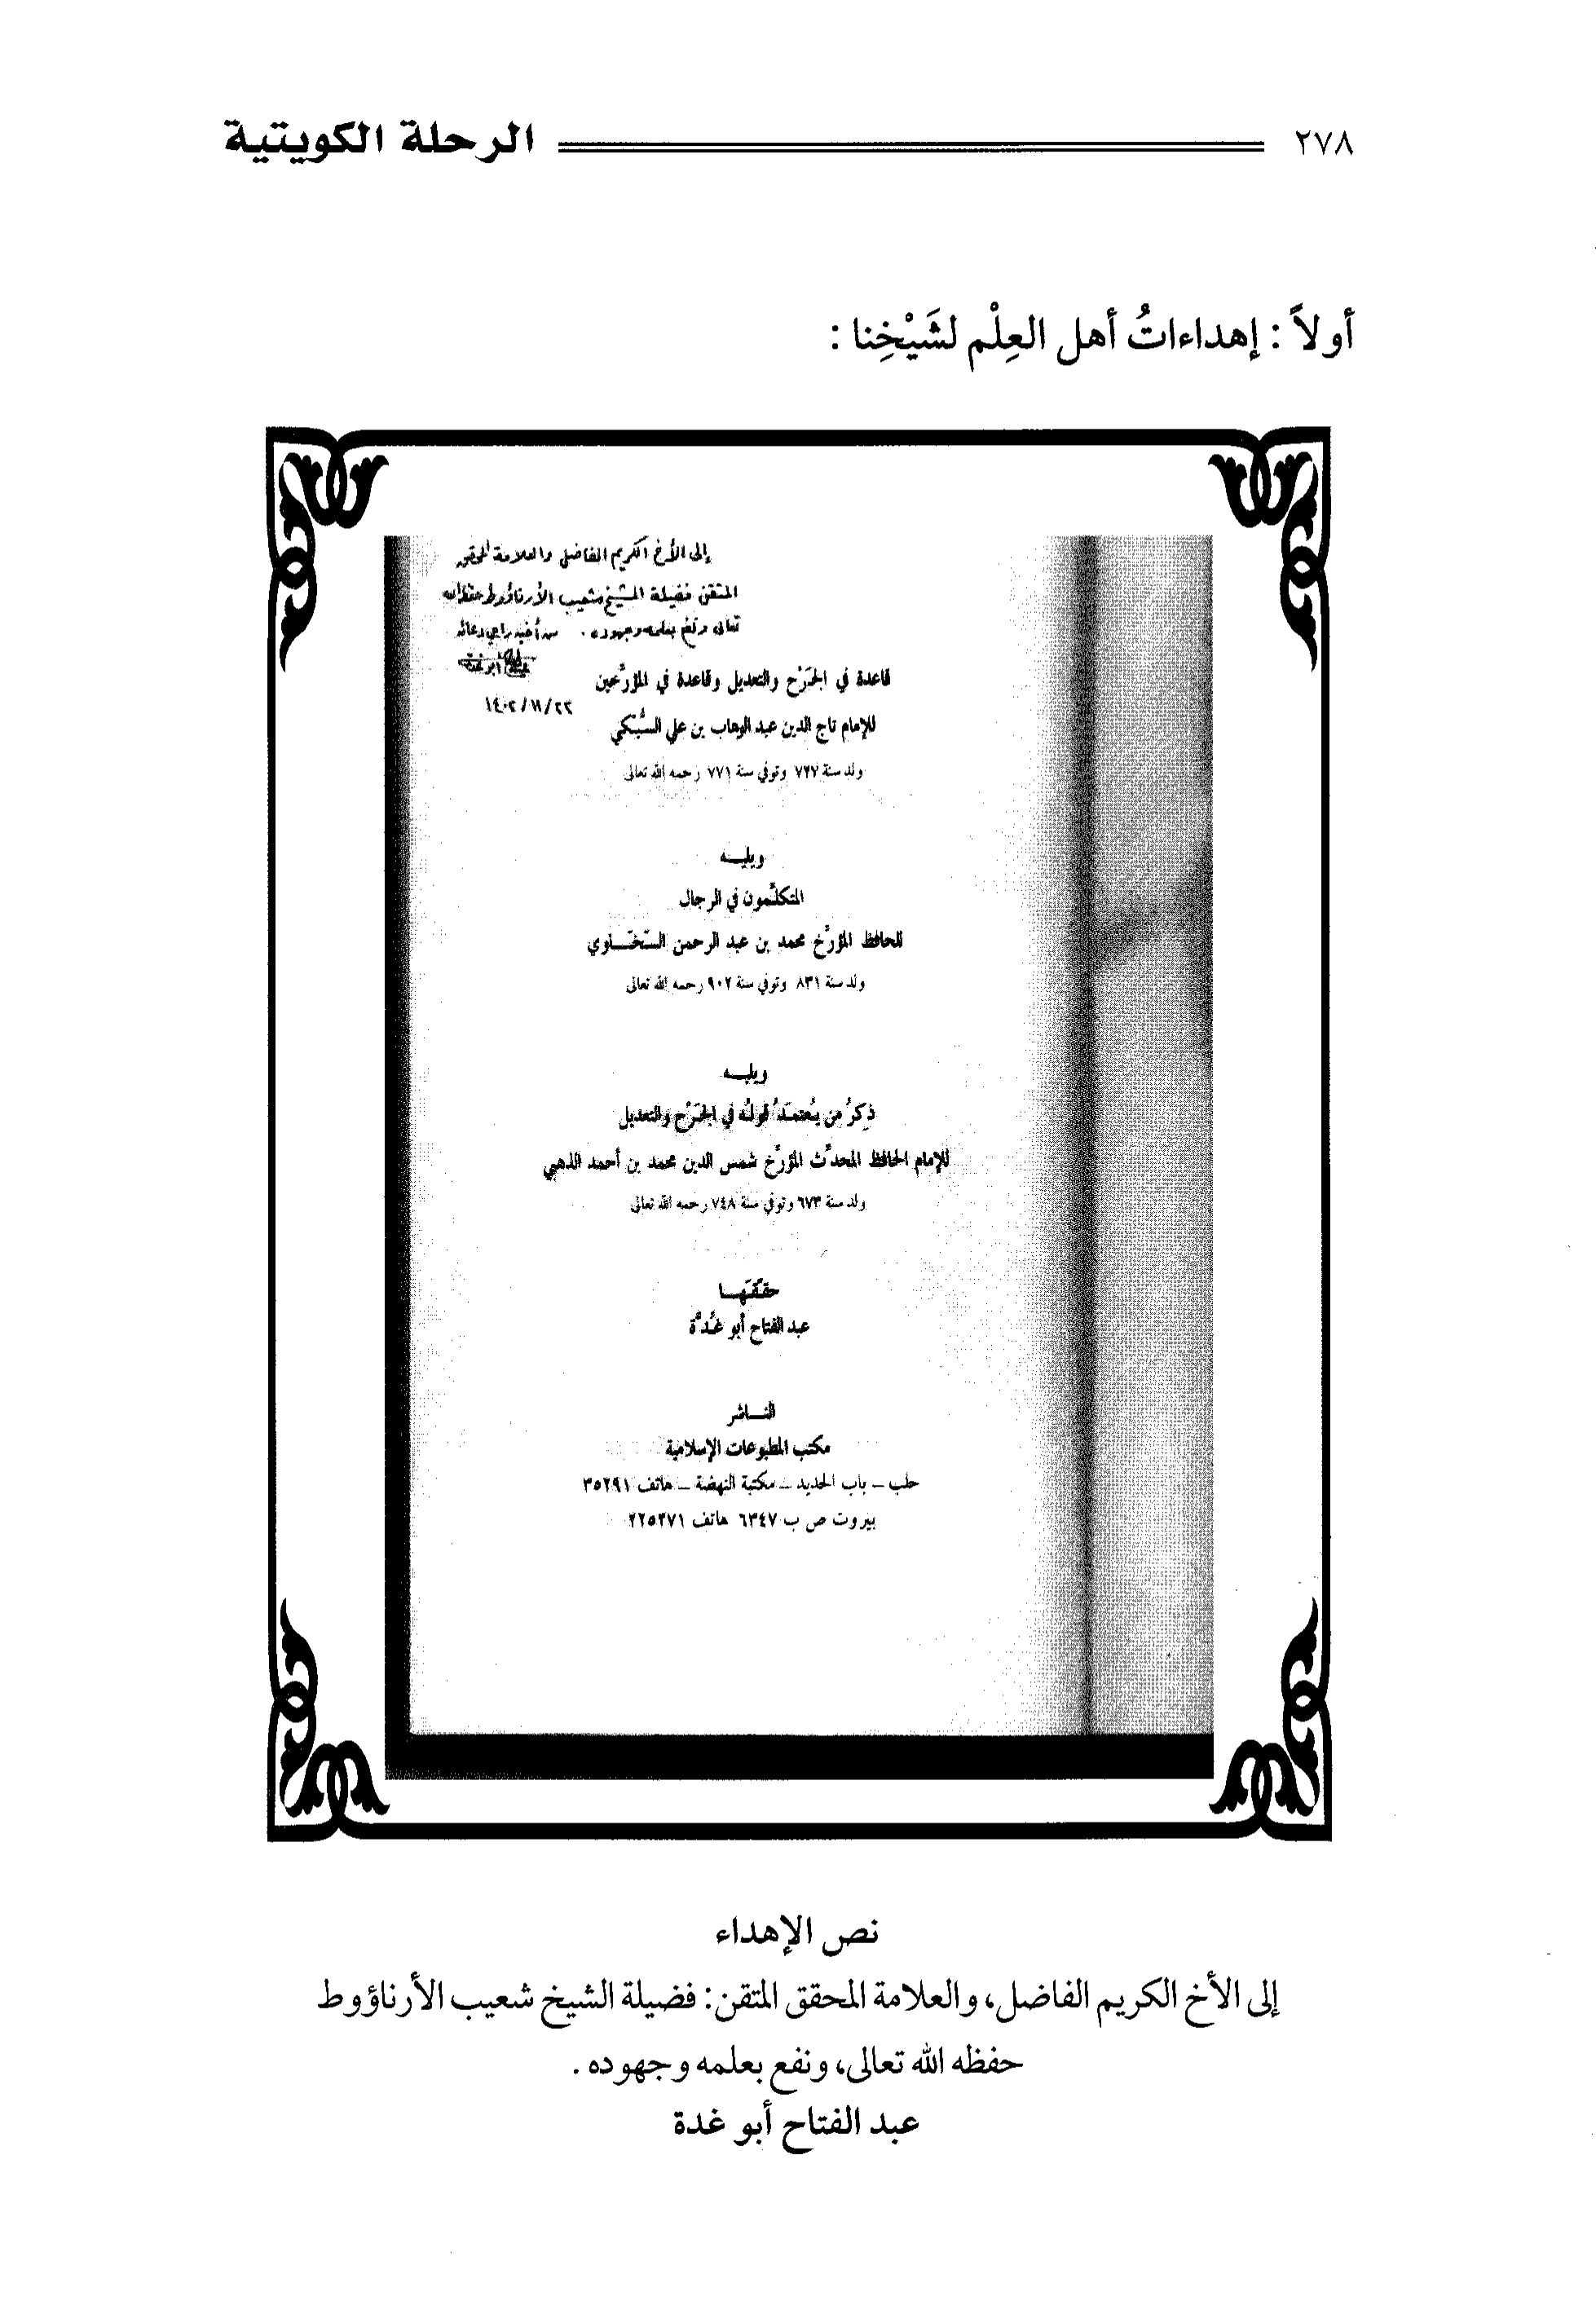 ٢٧٨ الرحلة الكويتية
أولاً : إهداءاتُ أهل العِلْم لشَيْخِنا :
إلى الأخ الكريم الفاضل والعلامة المحقق
المتقن فضيلة الشيخ شعيب الأرناؤوط حفظه الله
تعالى ونفع بعلمه وجهوده . من أخيه راجي دعائه
عبد الفتاح أبو غدة
١٤٠٢/١١/٢٢
قاعدة في الجَرْح والتعديل وقاعدة في المؤرِّخين
للإمام تاج الدين عبد الوهاب بن علي السُّبْكي
ولد سنة ٧٢٧ وتوفي سنة ٧٧١ رحمه الله تعالى
ويليــه
المتكلِّمون في الرجال
للحافظ المؤرِّخ محمد بن عبد الرحمن السَّخَــاوي
ولد سنة ٨٣١ وتوفي سنة ٩٠٢ رحمه الله تعالى
ويليــه
ذِكرُ من يُعتمَدُ قولُه في الجَرْح والتعديل
للإمام الحافظ المحدِّث المؤرِّخ شمس الدين محمد بن أحمد الذهبي
ولد سنة ٦٧٣ وتوفي سنة ٧٤٨ رحمه الله تعالى
حقَّقَهــا
عبد الفتاح أبو غُدَّة
النــاشر
مكتب المطبوعات الإسلامية
حلب – باب الحديد – مكتبة النهضة – هاتف ٣٥٢٩١
بيروت ص ب ٦٣٤٧ هاتف ٢٢٥٢٧١
نص الإهداء
إلى الأخ الكريم الفاضل، والعلامة المحقق المتقن: فضيلة الشيخ شعيب الأرناؤوط
حفظه الله تعالى، ونفع بعلمه وجهوده .
عبد الفتاح أبو غدة